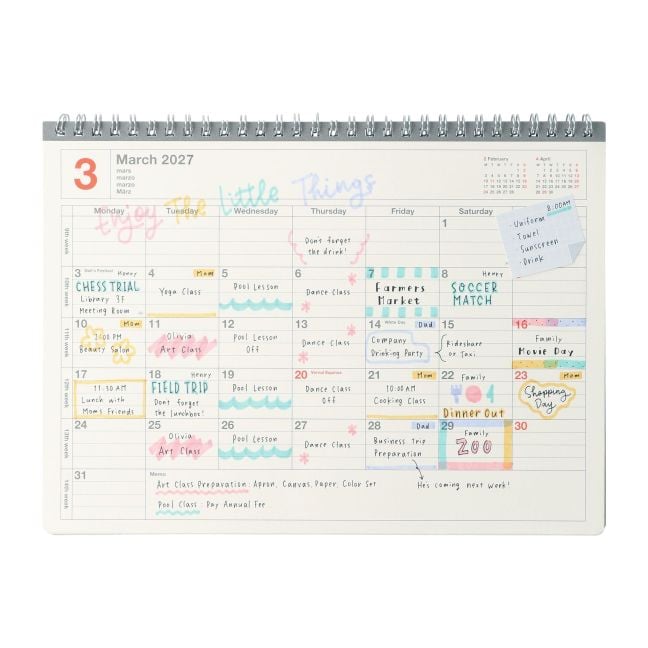 3
March 2027
mars
marzo
marzo
März
2 February
4 April
Enjoy The Little Things
Monday
Tuesday
Wednesday
Thursday
Friday
Saturday
9th week
1
8:00AM
· Uniform
Towel
Sunscreen
· Drink
Don't forget
the drink!
10th week
3 Doll's Festival Henry
CHESS TRIAL
Library 3F
Meeting Room
4 Mom
Yoga Class
5
Pool Lesson
6
Dance Class
7
Farmers
Market
8 Henry
SOCCER
MATCH
11th week
10 Mom
2:00 PM
Beauty Salon
11
Olivia
Art Class
12
Pool Lesson
Off
13
Dance Class
14 White Day Dad
Company
Drinking Party
15
Rideshare
or Taxi.
16
Family
Movie Day
12th week
17
11:30 AM
Lunch with
Mom's Friends
18 Henry
FIELD TRIP
Don't forget
the lunchbox!
19
Pool Lesson
20 Vernal Equinox
Dance Class
Off
21 Mom
10:00AM
Cooking Class
22 Family
Dinner Out
23 Mom
Shopping
Day
13th week
24
25
Olivia
Art Class
26
Pool Lesson
27
Dance Class
28 Dad
Business Trip
Preparation
29
Family
ZOO
30
He's coming next week!
14th week
31
Memo
Art Class Preparation : Apron, Canvas, Paper, Color Set
Pool Class : Pay Annual Fee